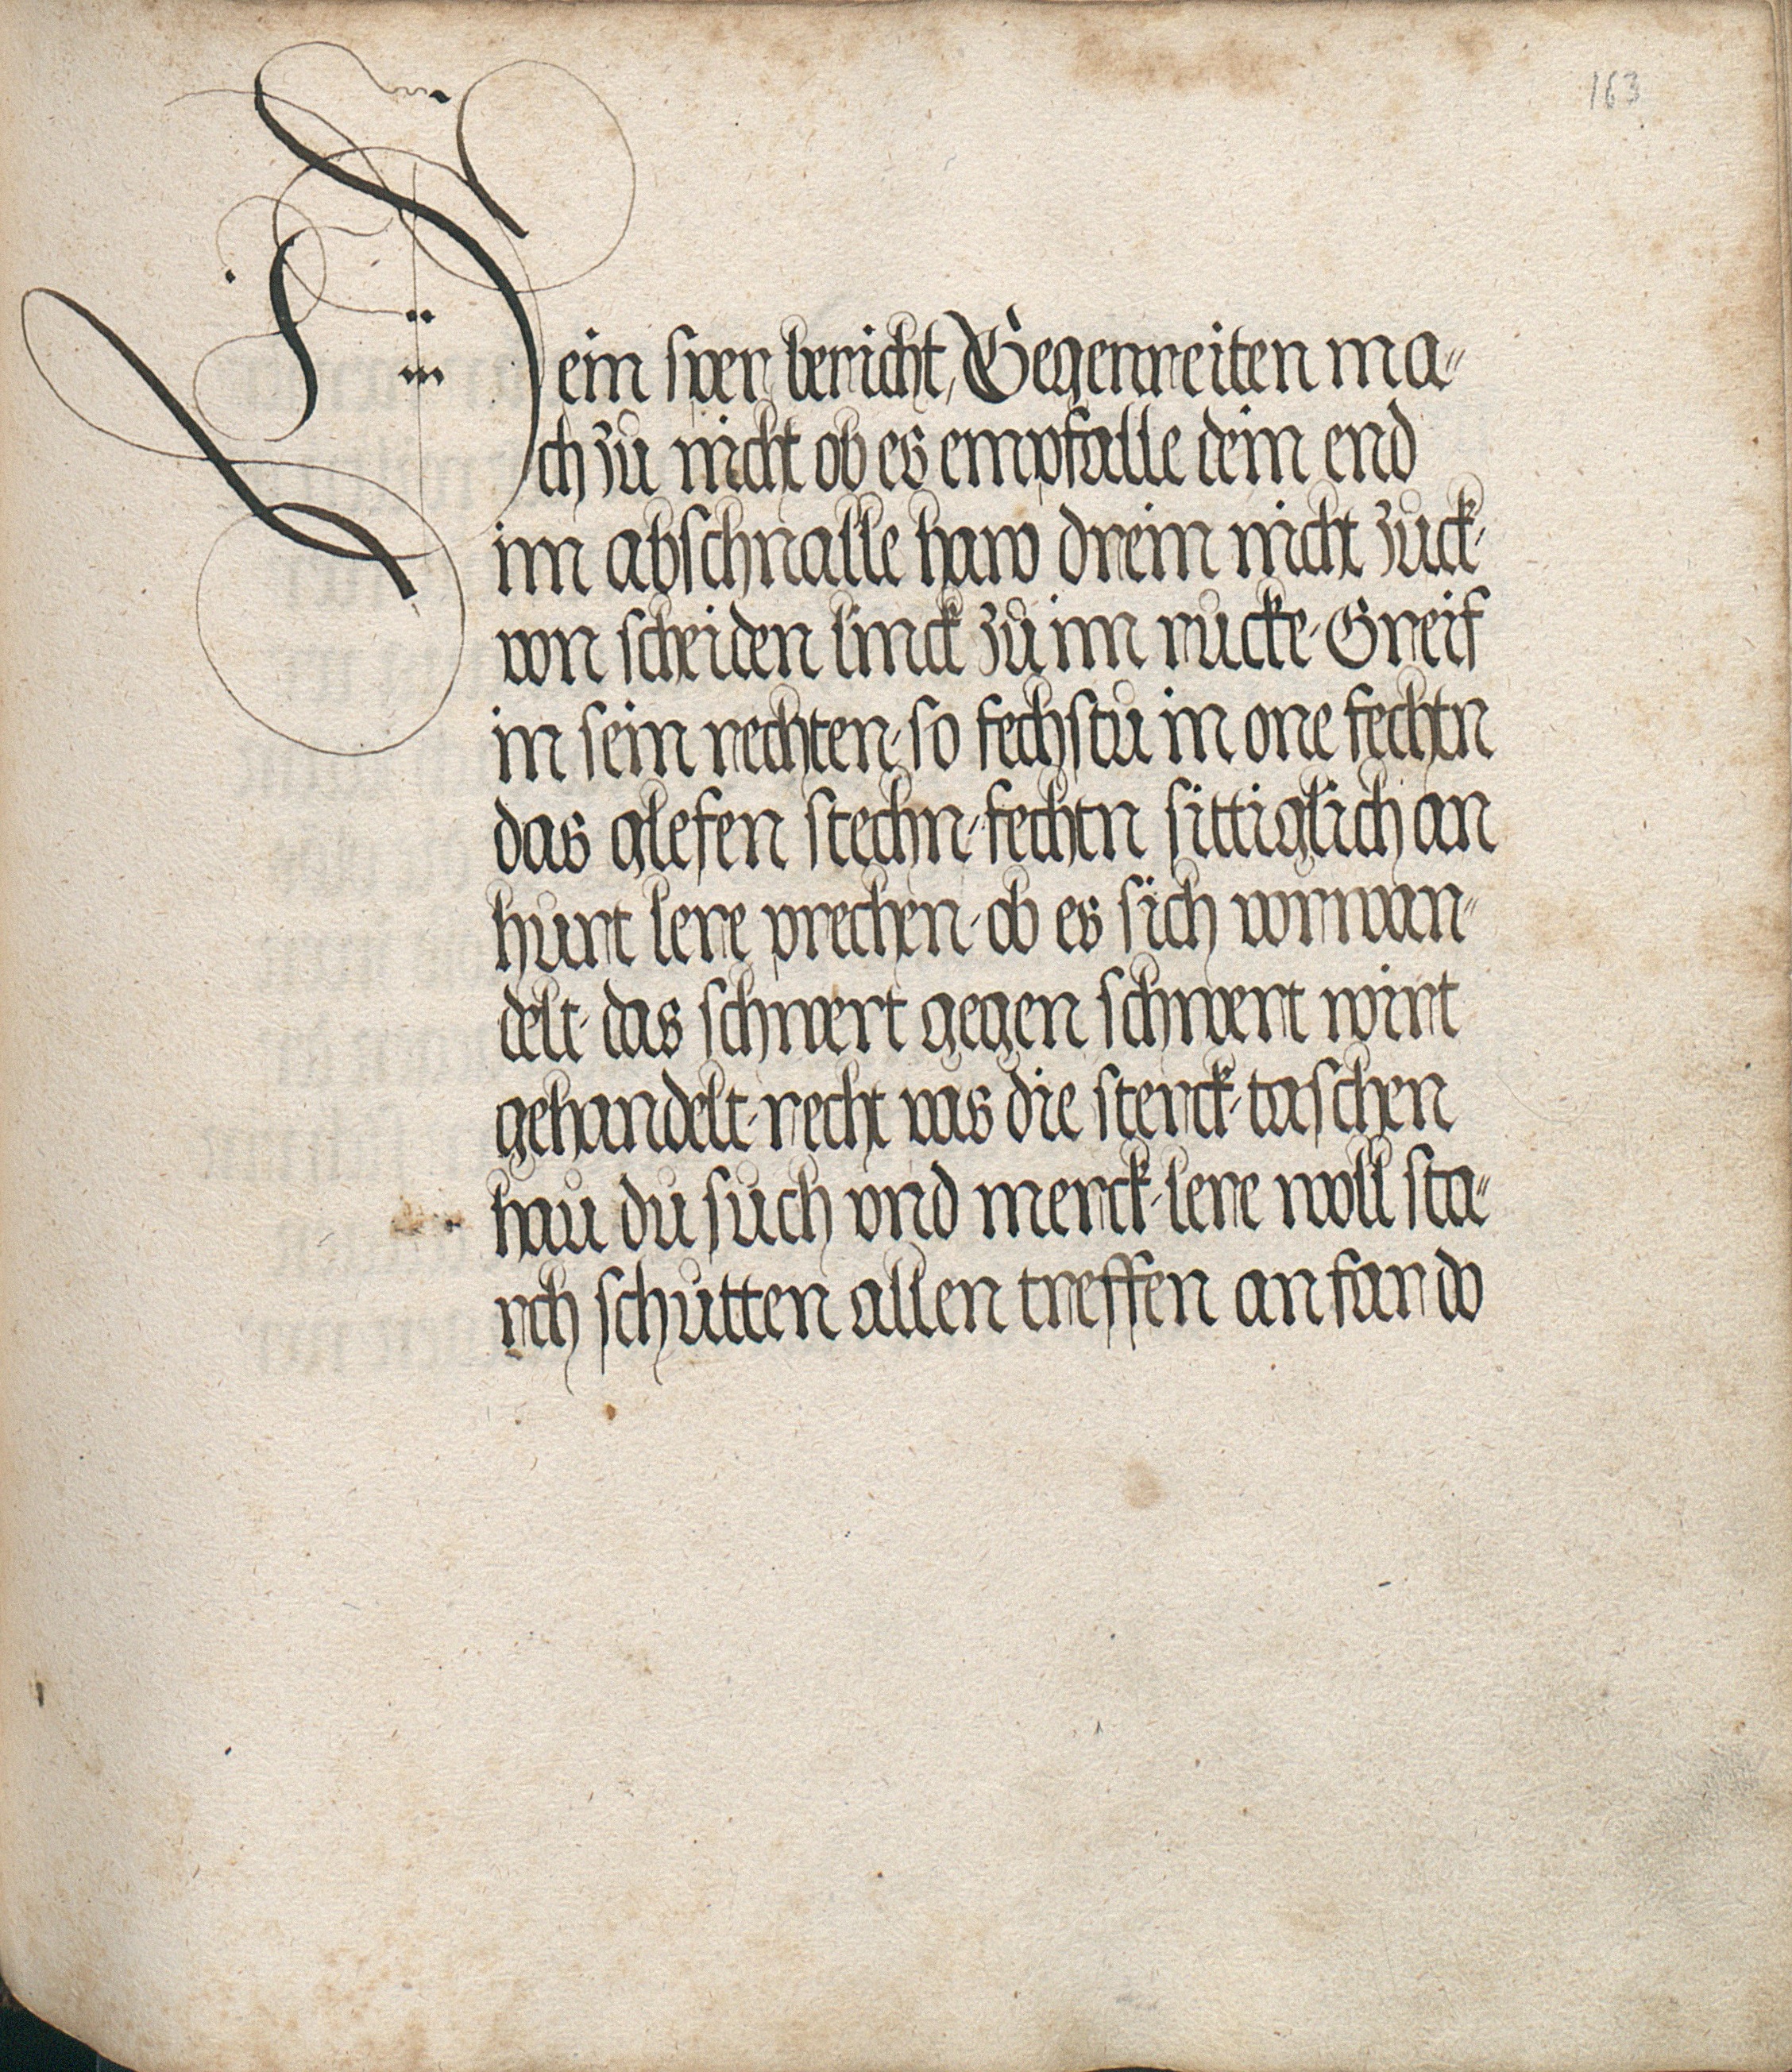 163
Dein sper bericht, Gegenreiten ma=
ch zů nicht ob es empfalle dein end
im abschnalle haw drein nicht zuck-
von scheiden linck zů im rucke- Greif
in sein rechten- so fechstu in one fechtn
das glefen stechn= fechtn sittiglich an
hurt lere prechen- ob es sich vorwan=
delt- das schwert gegen schwert wirt
gehandelt- recht vas die sterck- taschen
hau du such vnd merck- lere woll sta=
rch schutten allen treffen an far do